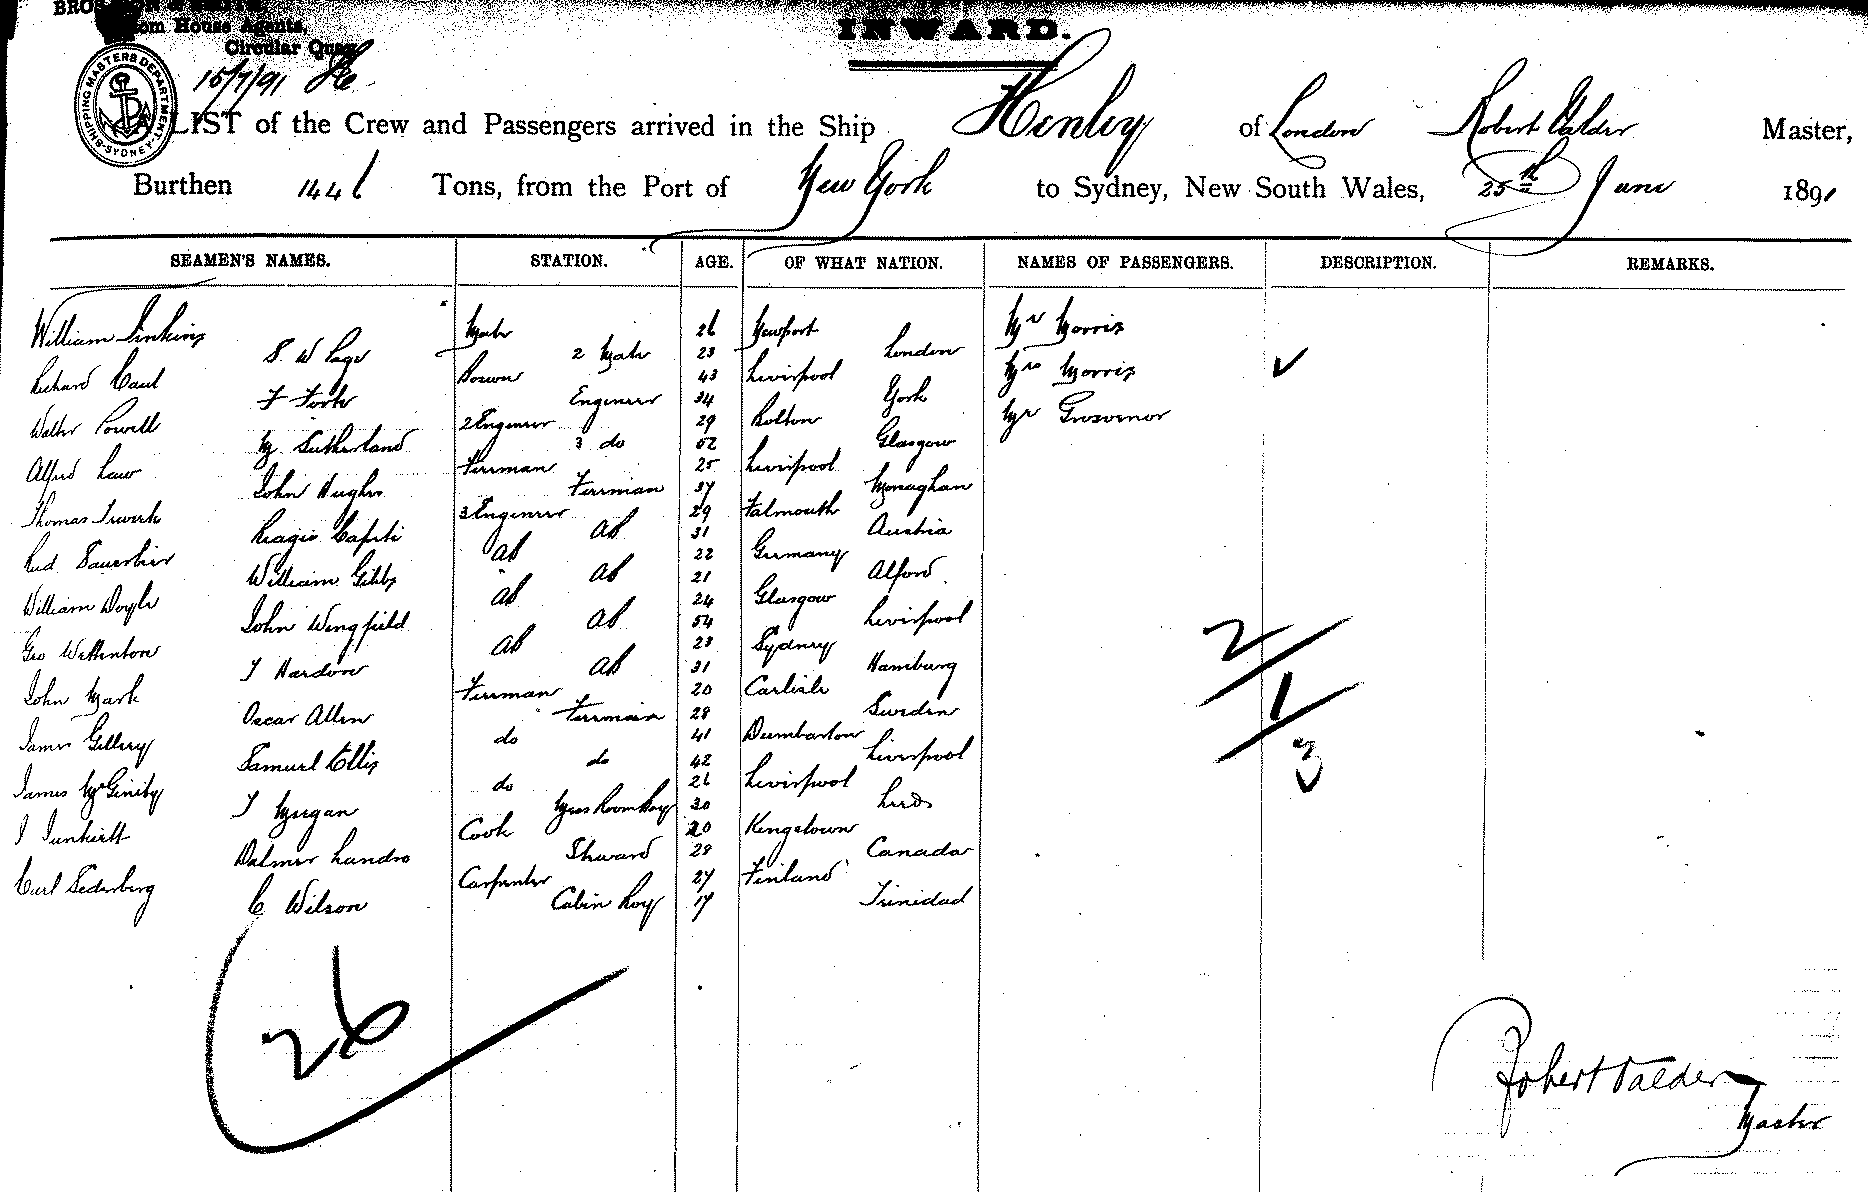 Circular Quay
15/7/91
SHIPPING MASTERS DEPARTMENT SYDNEY
INWARD.
A LIST of the Crew and Passengers arrived in the Ship Henley of London Robert Calder Master,
Burthen 1446 Tons, from the Port of New York to Sydney, New South Wales, 25th June 1891
SEAMEN'S NAMES. STATION. AGE. OF WHAT NATION. NAMES OF PASSENGERS. DESCRIPTION. REMARKS.
William Jinkins Mate 26 Newport Mr Morris
S. W Page 2 Mate 23 London
Richard Caul Bosun 43 Liverpool Mrs Morris ✓
F York Engineer 34 York
Walter Powell 2 Engineer 29 Bolton Mr Grosvenor
M Sutherland 3 do 52 Glasgow
Alfred Law Fireman 25 Liverpool
John Hughes Fireman 37 Monaghan
Thomas 3 Engineer 29 Falmouth
Caputi AB 31 Austria
Sauerbier AB 22 Germany
William Gibbs AB 21 Alford
William Doyle AB 24 Glasgow
John Wingfield AB 54 Liverpool
Geo Wettenton AB 23 Sydney
J Hardow AB 31 Hamburg
John Mark Fireman 20 Carlisle
Oscar Allen Fireman 28 Sweden
James Gillery do 41 Dumbarton
Samuel Ellis do 42 Liverpool
James McGinity do 26 Liverpool
J Morgan Mess Room Boy 30 Leeds
Cook 20 Kingstown
Dalmer Landro Steward 28 Canada
Carl Sederberg Carpenter 27 Finland
C Wilson Cabin Boy 17 Trinidad
2/1/3
26
Robert Calder
Master